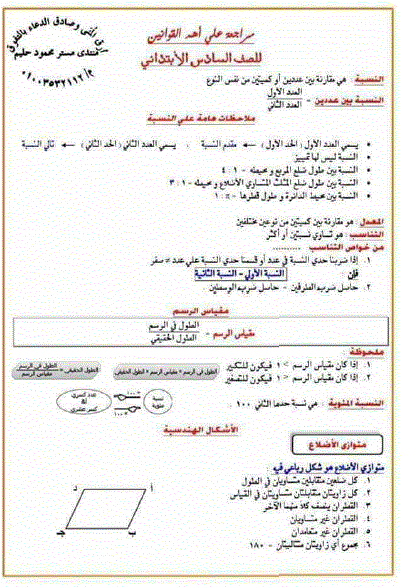 أرق المنى وصادق الدعاء بالتفوق
منتدى مستر محمود حليم
م/ ٠١٠٠٣٥٣٢١١٢
مراجعة علي أهم القوانين
للصف السادس الأبتدائي
النسبة : هي مقارنة بين عددين أو كميتين من نفس النوع
النسبة بين عددين = العدد الأول
العدد الثاني
ملاحظات عامة علي النسبة
• يسمي العدد الأول (الحد الأول) ← مقدم النسبة ، يسمي العدد الثاني (الحد الثاني) ← تالي النسبة
• النسبة ليس لها تمييز
• النسبة بين طول ضلع المربع و محيطه = ١ : ٤
• النسبة بين طول ضلع المثلث المتساوي الأضلاع و محيطه = ١ : ٣
• النسبة بين محيط الدائرة و طول قطرها = π : ١
المعدل : هو مقارنة بين كميتين من نوعين مختلفين
التناسب : هو تساوي نسبتين أو أكثر
من خواص التناسب ..........
١. إذا ضربنا حدي النسبة في عدد أو قسمنا حدي النسبة علي عدد ≠ صفر
فإن النسبة الأولي = النسبة الثانية
٢. حاصل ضرب الطرفين = حاصل ضرب الوسطين
مقياس الرسم
مقياس الرسم = الطول في الرسم
الطول الحقيقي
ملحوظة :
١. إذا كان مقياس الرسم > ١ فيكون للتكبير
٢. إذا كان مقياس الرسم < ١ فيكون للتصغير
الطول في الرسم = مقياس الرسم × الطول الحقيقي
الطول الحقيقي = الطول في الرسم
مقياس الرسم
النسبة المئوية : هي نسبة حدها الثاني ١٠٠
نسبة مئوية
١٠٠ ÷
١٠٠ ×
عدد كسري أو كسر عشري
الأشكال الهندسية
متوازي الأضلاع
متوازي الأضلاع هو شكل رباعي فيه
١. كل ضلعين متقابلين متساويان في الطول
٢. كل زاويتان متقابلتان متساويتان في القياس
٣. القطران ينصف كلا منهما الآخر
٤. القطران غير متساويان
٥. القطران غير متعامدان
٦. مجموع أي زاويتان متتاليتان = ١٨٠
أ
د
ب
جـ